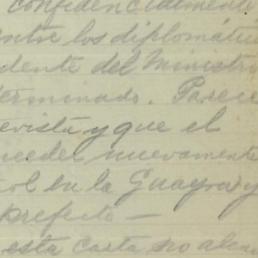 confidencialmente
entre los diplomátic
dente del Ministr
terminado. Parece
evista y que el
ceder nuevamente
ol en la Guayra y
prefecto —
esta carta no alca